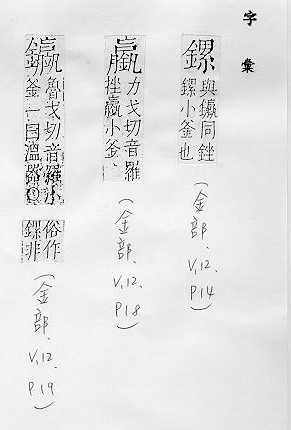 字彙
鏍與鑼同銼
鏍小釜也
（金部、V.12、P14）
力戈切音羅
銼小釜、
（金部、V.12、P18）
魯戈切音羅小
釜一曰溫器
俗作
鏍非
（金部、V.12、P19）